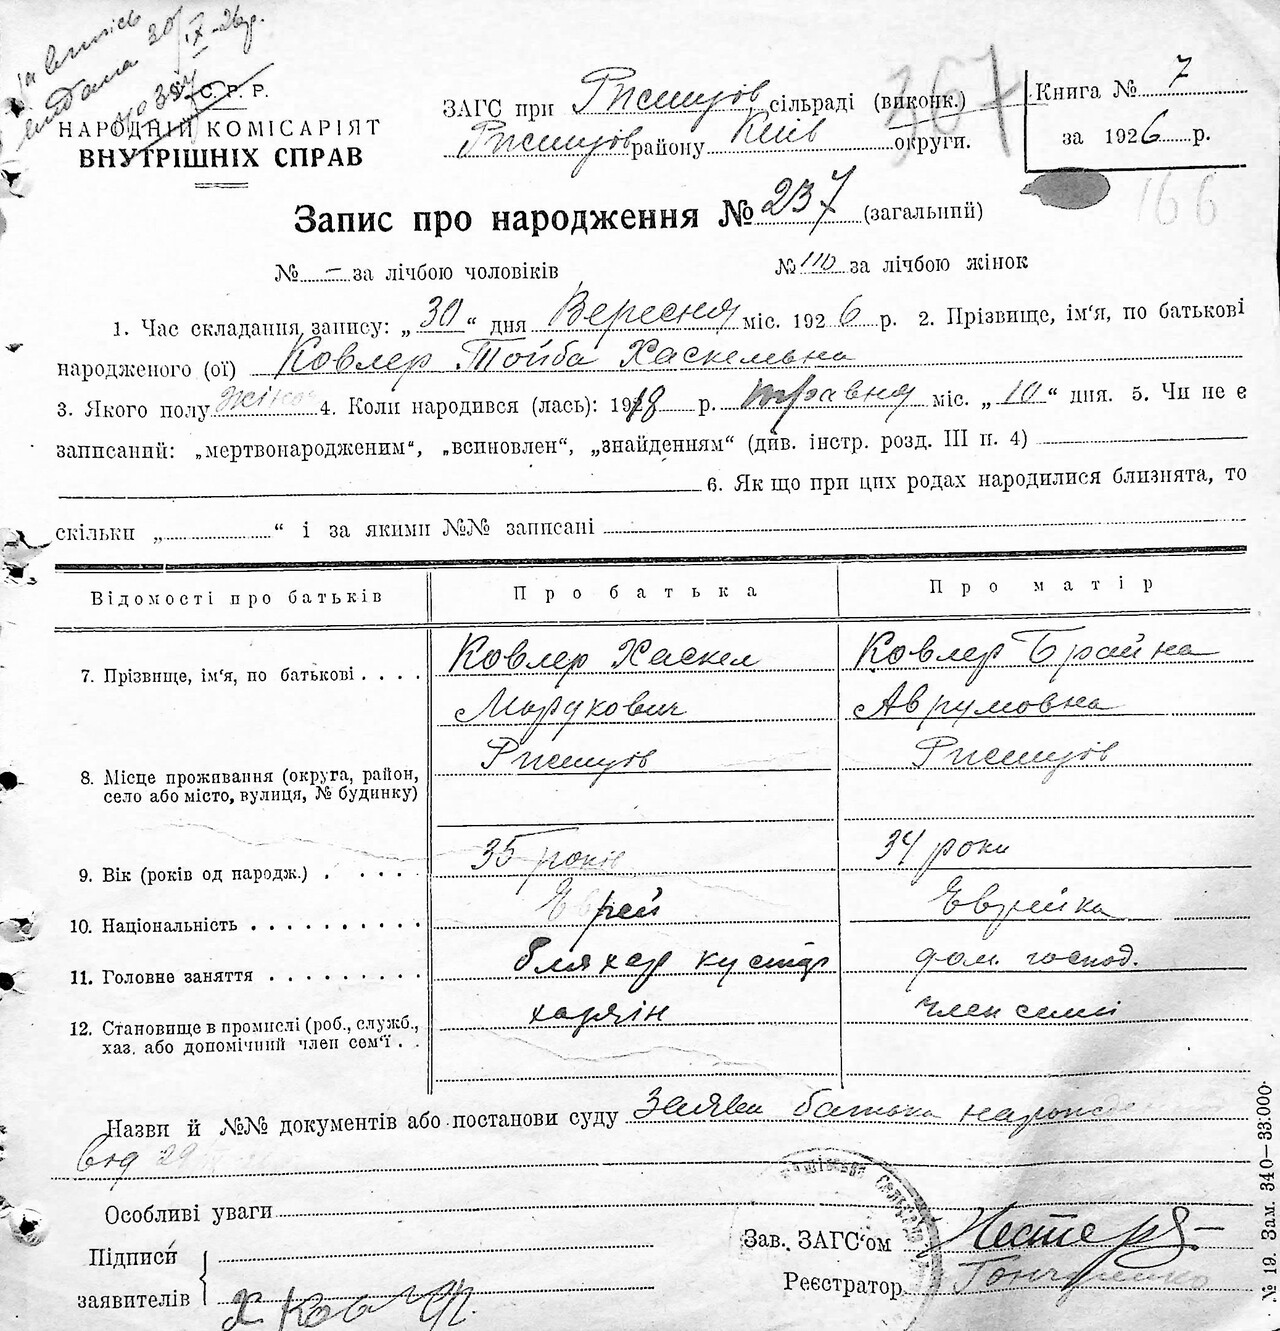 За випись
видана 30/IX-26р.
№ 357
У. С. Р. Р.
НАРОДНІЙ КОМІСАРІЯТ
ВНУТРІШНІХ СПРАВ
ЗАГС при Ржищів сільраді (виконк.)
Ржищів району Київ округи.
367
Книга № 7
за 1926 р.
166
Запис про народження № 237 (загальний)
№ – за лічбою чоловіків № 110 за лічбою жінок
1. Час складання запису: „30“ дня Вересня міс. 1926 р. 2. Прізвище, ім'я, по батькові
народженого (ої) Ковлер Тойба Хаскельвна
3. Якого полу жіноч 4. Коли народився (лась): 1918 р. травня міс. „10“ дня. 5. Чи не є
записаний: „мертвонародженим“, „всиновлен“, „знайденням“ (див. інстр. розд. III п. 4)
6. Як що при цих родах народилися близнята, то
скільки „ “ і за якими №№ записані
Відомості про батьків Про батька Про матір
7. Прізвище, ім'я, по батькові . . . . Ковлер Хаскел Ковлер Брайна
Мордкович Аврумовна
8. Місце проживання (округа, район, Ржищів Ржищів
село або місто, вулиця, № будинку)
9. Вік (років од народж.) . . . . . 35 років 34 роки
10. Національність . . . . . . . . . . Єврей Єврейка
11. Головне заняття . . . . . . . . . бляхар кустар дом. господ.
12. Становище в промислі (роб., служб., хазяїн член семї
хаз. або допомічний член сем'ї . .
Назви й №№ документів або постанови суду Заява батька
від 29
Особливі уваги
Підписи
заявителів Х Ковлер
Зав. ЗАГС'ом Нестер
Реєстратор Гончаренко
№ 19. Зам. 340—33.000.